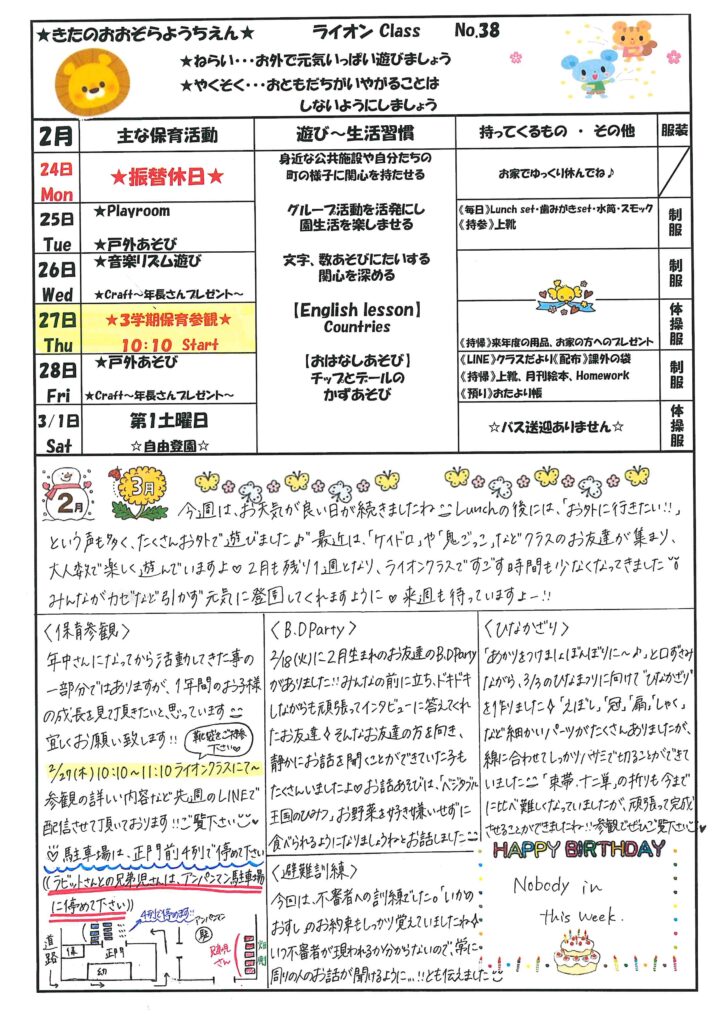 ★きたのおおぞらようちえん★ ライオン Class No.38
★ねらい・・・お外で元気いっぱい遊びましょう
★やくそく・・・おともだちがいやがることは
しないようにしましょう
2月 主な保育活動 遊び～生活習慣 持ってくるもの ・ その他 服装
24日 Mon ★振替休日★ お家でゆっくり休んでね♪
25日 Tue ★Playroom
★戸外あそび
《毎日》Lunch set・歯みがきset・水筒・スモック
《持参》上靴
制服
26日 Wed ★音楽リズム遊び
★Craft～年長さんプレゼント～
制服
27日 Thu ★3学期保育参観★
10:10 Start
《持帰》来年度の用品、お家の方へのプレゼント
体操服
28日 Fri ★戸外あそび
★Craft～年長さんプレゼント～
《LINE》クラスだより《配布》課外の袋
《持帰》上靴、月刊絵本、Homework
《預り》おたより帳
制服
3/1日 Sat 第1土曜日
☆自由登園☆
☆バス送迎ありません☆
体操服
身近な公共施設や自分たちの
町の様子に関心を持たせる
グループ活動を活発にし
園生活を楽しませる
文字、数あそびにたいする
関心を深める
【English lesson】
Countries
【おはなしあそび】
チップとデールの
かずあそび
2月
3月
今週は、お天気が良い日が続きましたね Lunchの後には、「お外に行きたい!!」
という声も多く、たくさんお外で遊びました♪ 最近は、「ケイドロ」や「鬼ごっこ」などクラスのお友達が集まり、
大人数で楽しく遊んでいますよ♡ 2月も残り1週となり、ライオンクラスですごす時間も少なくなってきました
みんながカゼなど引かず元気に登園してくれますように♡ 来週も待っていますよー!!
〈保育参観〉
年中さんになってから活動してきた事の
一部分ではありますが、1年間のお子様
の成長を見て頂きたいと思っています
宜しくお願い致します!!
靴袋をご持参下さい♡
2/27(木)10:10～11:10 ライオンクラスにて～
参観の詳しい内容など先週のLINEで
配信させて頂いております!!ご覧下さい♡
♡駐車場は、正門前4列で停めて下さい
((ラビットさんとの兄弟児さんは、アンパンマン駐車場
に停めて下さい))
4列で停めます
アンパンマン
駐
道路
保
正門
幼
兄弟児さん
畑側
〈B.DParty〉
2/18(火)に2月生まれのお友達のB.DParty
がありました!!みんなの前に立ち、ドキドキ
しながらも頑張ってインタビューに答えてくれ
たお友達◇そんなお友達の方を向き、
静かにお話を聞くことができていた子も
たくさんいましたよ♡お話あそびは、「ベジタブル
王国のひみつ」お野菜を好き嫌いせずに
食べられるようになりましょうねとお話しました
〈避難訓練〉
今回は、不審者への訓練でした。「いかの
おすし」のお約束もしっかり覚えていましたね◇
いつ不審者が現われるか分からないので、常に
周りの人のお話が聞けるように...!!とも伝えました
〈ひなかざり〉
「あかりをつけましょぼんぼりに～♪」と口ずさみ
ながら、3/3のひなまつりに向けて"ひなかざり"
を作りました◇「えぼし」「冠」「扇」「しゃく」
など細かいパーツがたくさんありましたが、
線に合わせてしっかりハサミで切ることができて
いました 「束帯、十二単」の折りも今まで
に比べ難しくなっていましたが、頑張って完成
させることができましたね!!参観でぜひご覧下さい♡
HAPPY BIRTHDAY
Nobody in
this week.